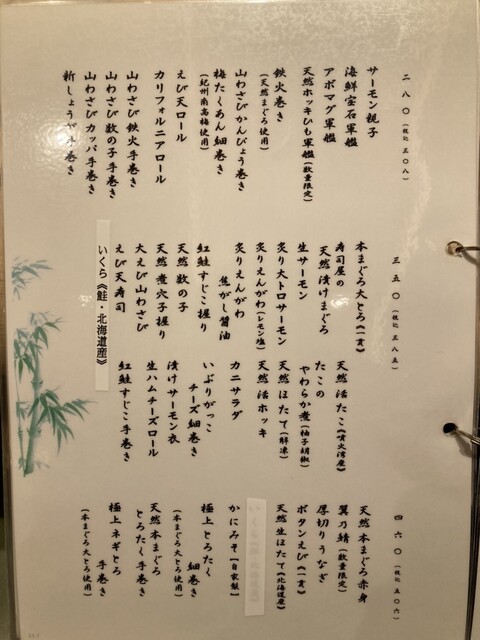 二八〇(税込 三〇八)
サーモン親子
海鮮宝石軍艦
アボマグ軍艦
天然ホッキひも軍艦(数量限定)
鉄火巻き
(天然まぐろ使用)
山わさびかんぴょう巻き
梅たくあん細巻き
(紀州南高梅使用)
えび天ロール
カリフォルニアロール
山わさび鉄火手巻き
山わさび数の子手巻き
山わさびカッパ手巻き
新しょうが手巻き
三五〇(税込 三八五)
本まぐろ大とろ《一貫》
寿司屋の
天然漬けまぐろ
生サーモン
炙り大トロサーモン
炙りえんがわ(レモン塩)
炙りえんがわ
焦がし醤油
紅鮭すじこ握り
天然数の子
天然煮穴子握り
大えび山わさび
えび天寿司
いくら《鮭・北海道産》
天然活たこ《噴火湾産》
たこの
やわらか煮(柚子胡椒)
天然ほたて(解凍)
天然活ホッキ
カニサラダ
いぶりがっこ
チーズ細巻き
漬けサーモン衣
生ハムチーズロール
紅鮭すじこ手巻き
四六〇(税込 五〇六)
天然本まぐろ赤身
翼乃鯖(数量限定)
厚切りうなぎ
ボタンえび《一貫》
天然生ほたて《北海道産》
かにみそ【自家製】
極上とろたく
細巻き
(本まぐろ大とろ使用)
天然本まぐろ
とろたく手巻き
極上ネギとろ
手巻き
(本まぐろ大とろ使用)